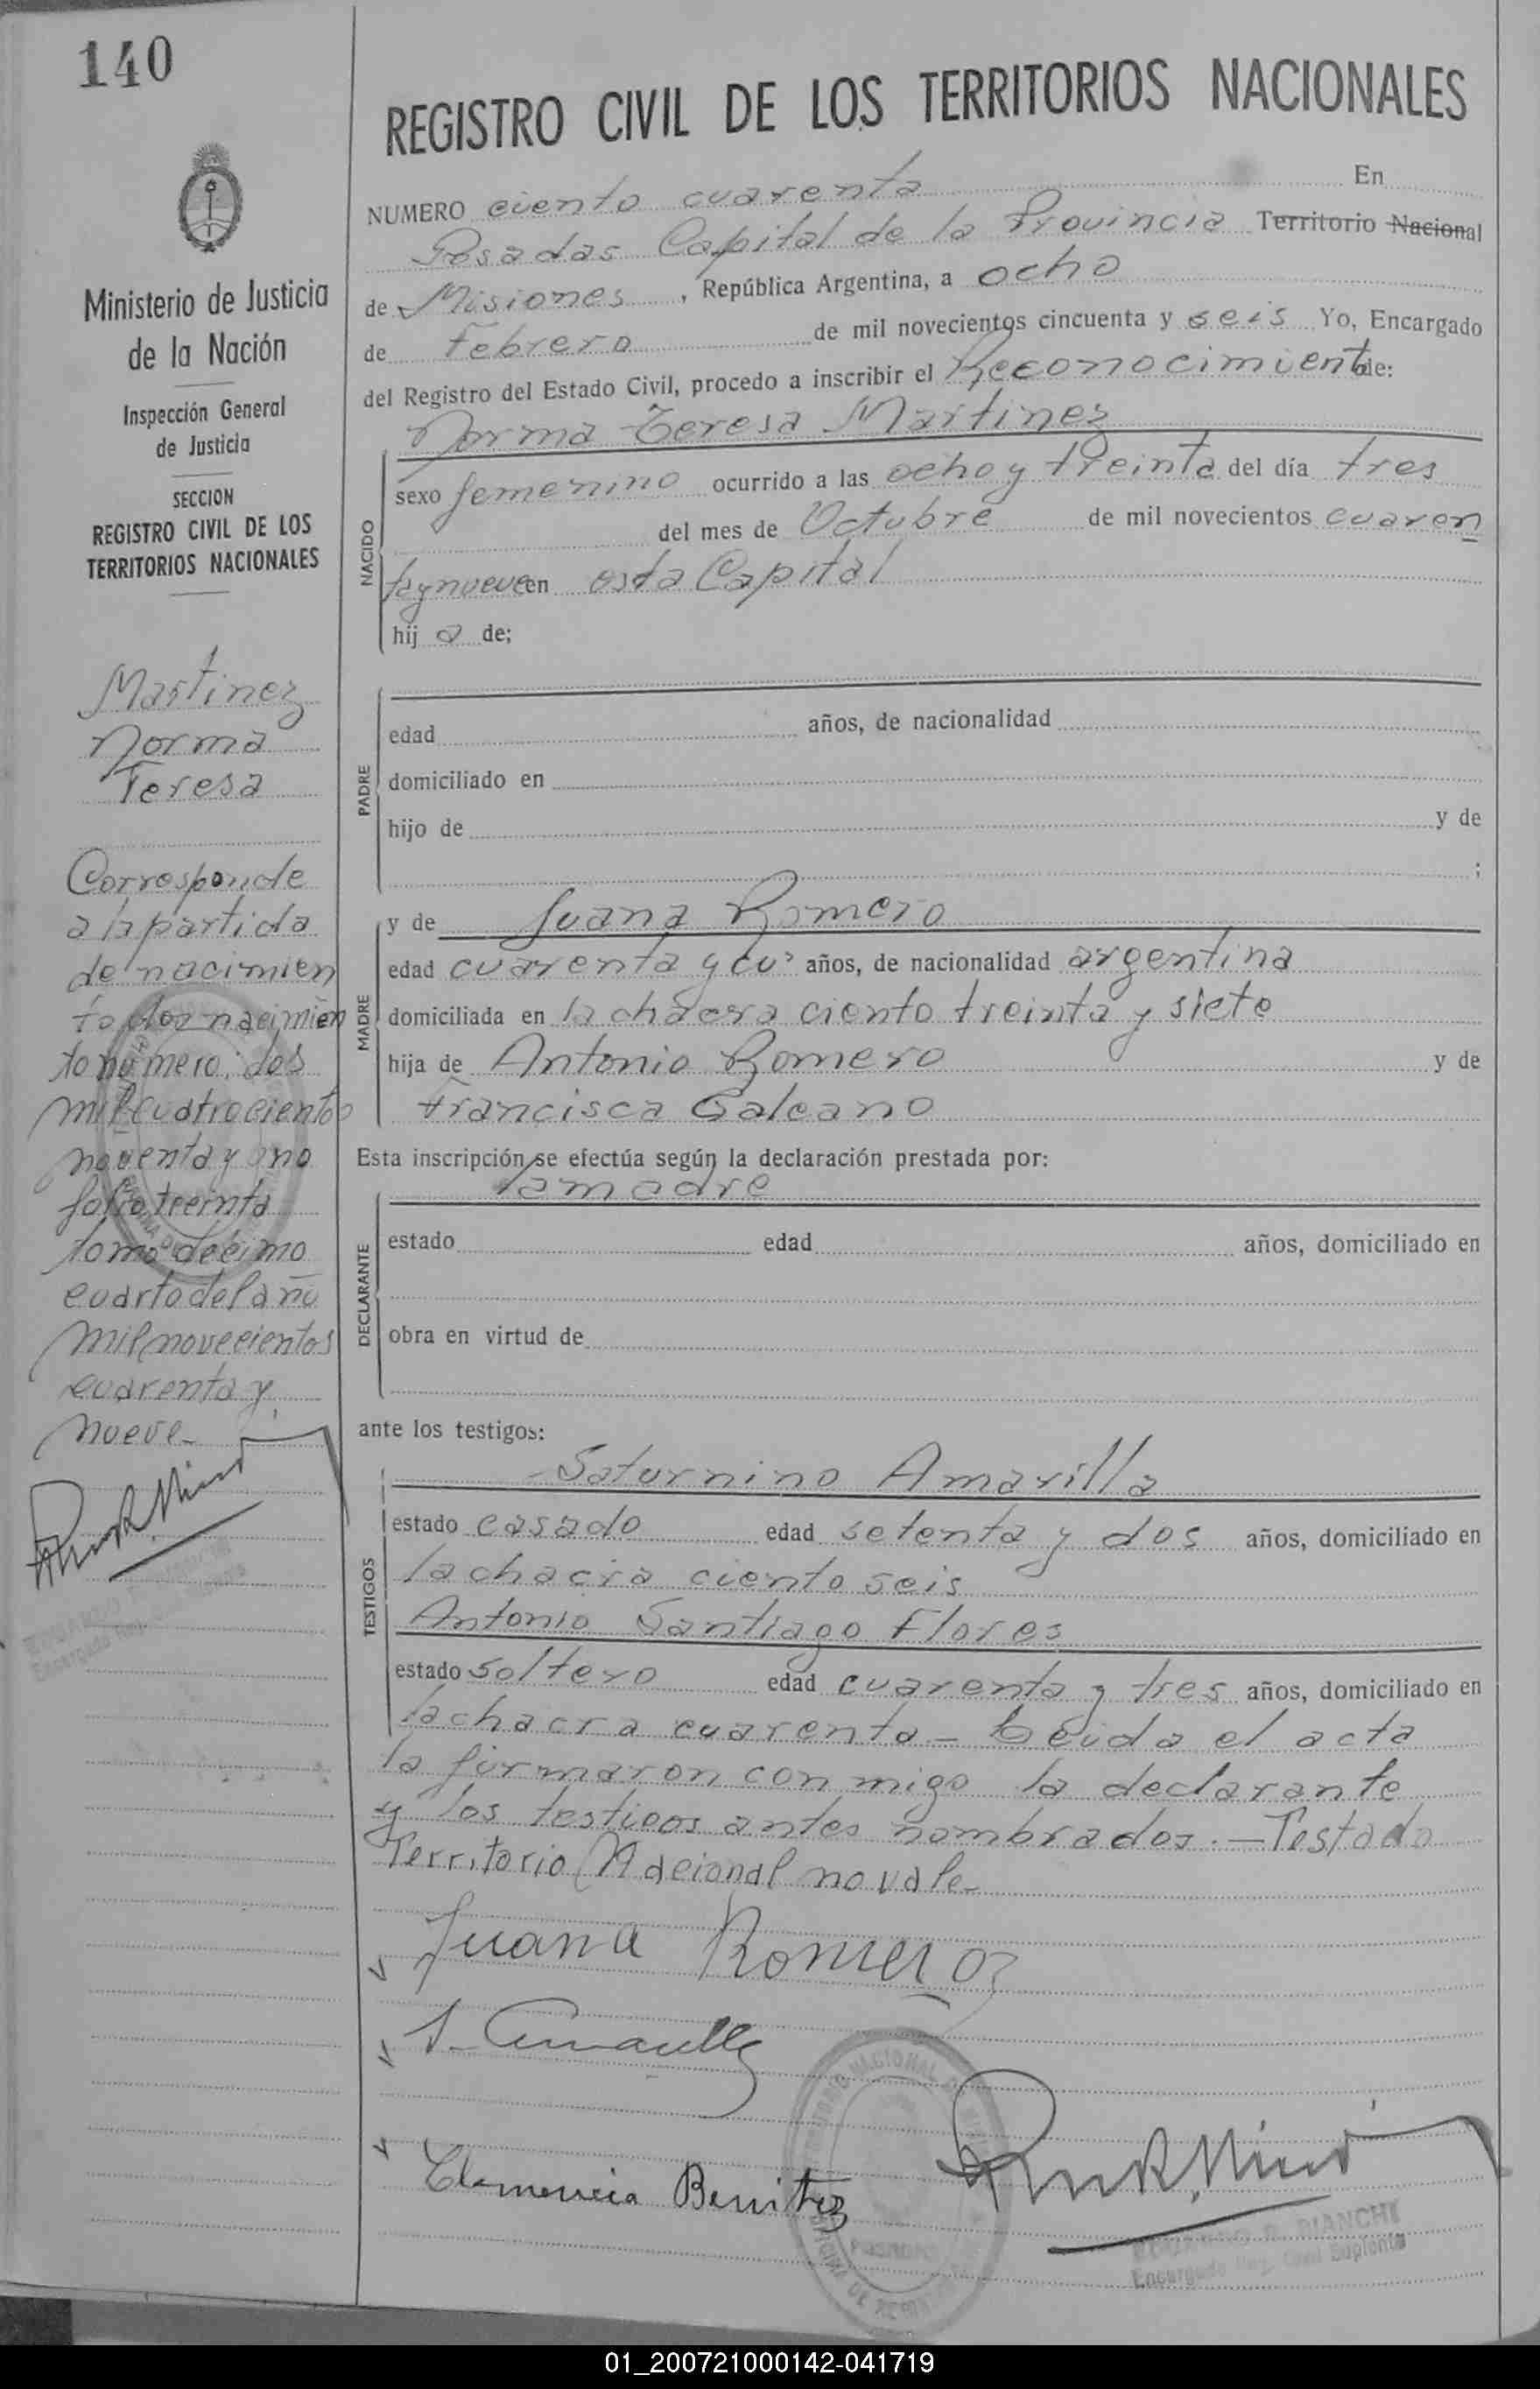 140
REGISTRO CIVIL DE LOS TERRITORIOS NACIONALES
NUMERO ciento cuarenta En
Posadas Capital de la Provincia Territorio Nacional
de Misiones, República Argentina, a ocho
de Febrero de mil novecientos cincuenta y seis Yo, Encargado
del Registro del Estado Civil, procedo a inscribir el Reconocimiento de:
Norma Teresa Martinez
NACIDO
sexo femenino ocurrido a las ocho y treinta del día tres
del mes de Octubre de mil novecientos cuaren
ta y nueve en esta Capital
hij a de;
PADRE
edad años, de nacionalidad
domiciliado en
hijo de y de
;
MADRE
y de Juana Romero
edad cuarenta y cu años, de nacionalidad argentina
domiciliada en la chacra ciento treinta y siete
hija de Antonio Romero y de
Francisca Galeano
Esta inscripción se efectúa según la declaración prestada por:
la madre
DECLARANTE
estado edad años, domiciliado en
obra en virtud de
ante los testigos:
TESTIGOS
Saturnino Amarilla
estado casado edad setenta y dos años, domiciliado en
la chacra ciento seis
Antonio Santiago Flores
estado soltero edad cuarenta y tres años, domiciliado en
la chacra cuarenta - Leida el acta
la firmaron conmigo la declarante
y los testigos antes nombrados. — Testado
Territorio Nacional no vale-
Juana Romero
S. Amarilla
Clemencia Benitez
BIANCHI
Encargado Reg. Civil Suplente
Ministerio de Justicia
de la Nación
Inspección General
de Justicia
SECCION
REGISTRO CIVIL DE LOS
TERRITORIOS NACIONALES
Martinez
Norma
Teresa
Corresponde
a la partida
de nacimien
to nacimien
to número: dos
mil cuatrocientos
noventa y uno
folio treinta
tomo décimo
cuarto del año
mil novecientos
cuarenta y
nueve-
01_200721000142-041719